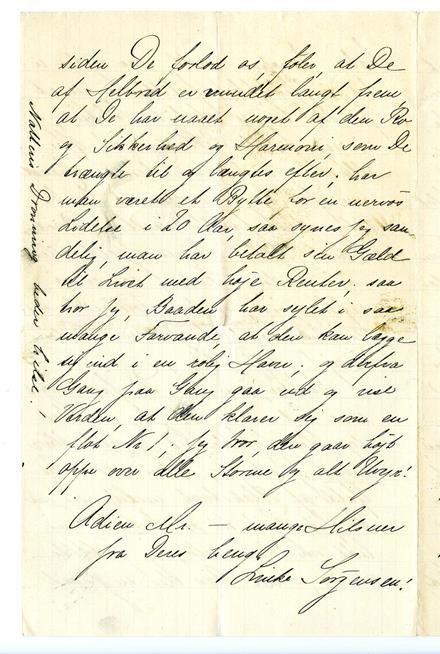 siden De forlod os, føler, at De
af Helbred er vundet langt frem
at De har naaet noget af den Ro
og Sikkerhed og Harmoni, som De
trængte til og længtes efter; har
man været et Bytte for en nervøs
Lidelse i 20 Aar, saa synes jeg san-
delig, man har betalt sin Gæld
til Livet med høje Renter; saa
tror jeg, Baaden har sejlet i saa
mange Farvande, at den kan lægge
ind i en rolig Havn; og derfra
Gang paa Gang gaa ud og vise
Verden, at den klarer sig som en
flot No 1; jeg tror, den gaar højt
oppe over alle Storme og alt
Adieu Mr. — mange Hilsner
fra Deres heng.
Jørgensen!
Nattens Dronning beder hilse!